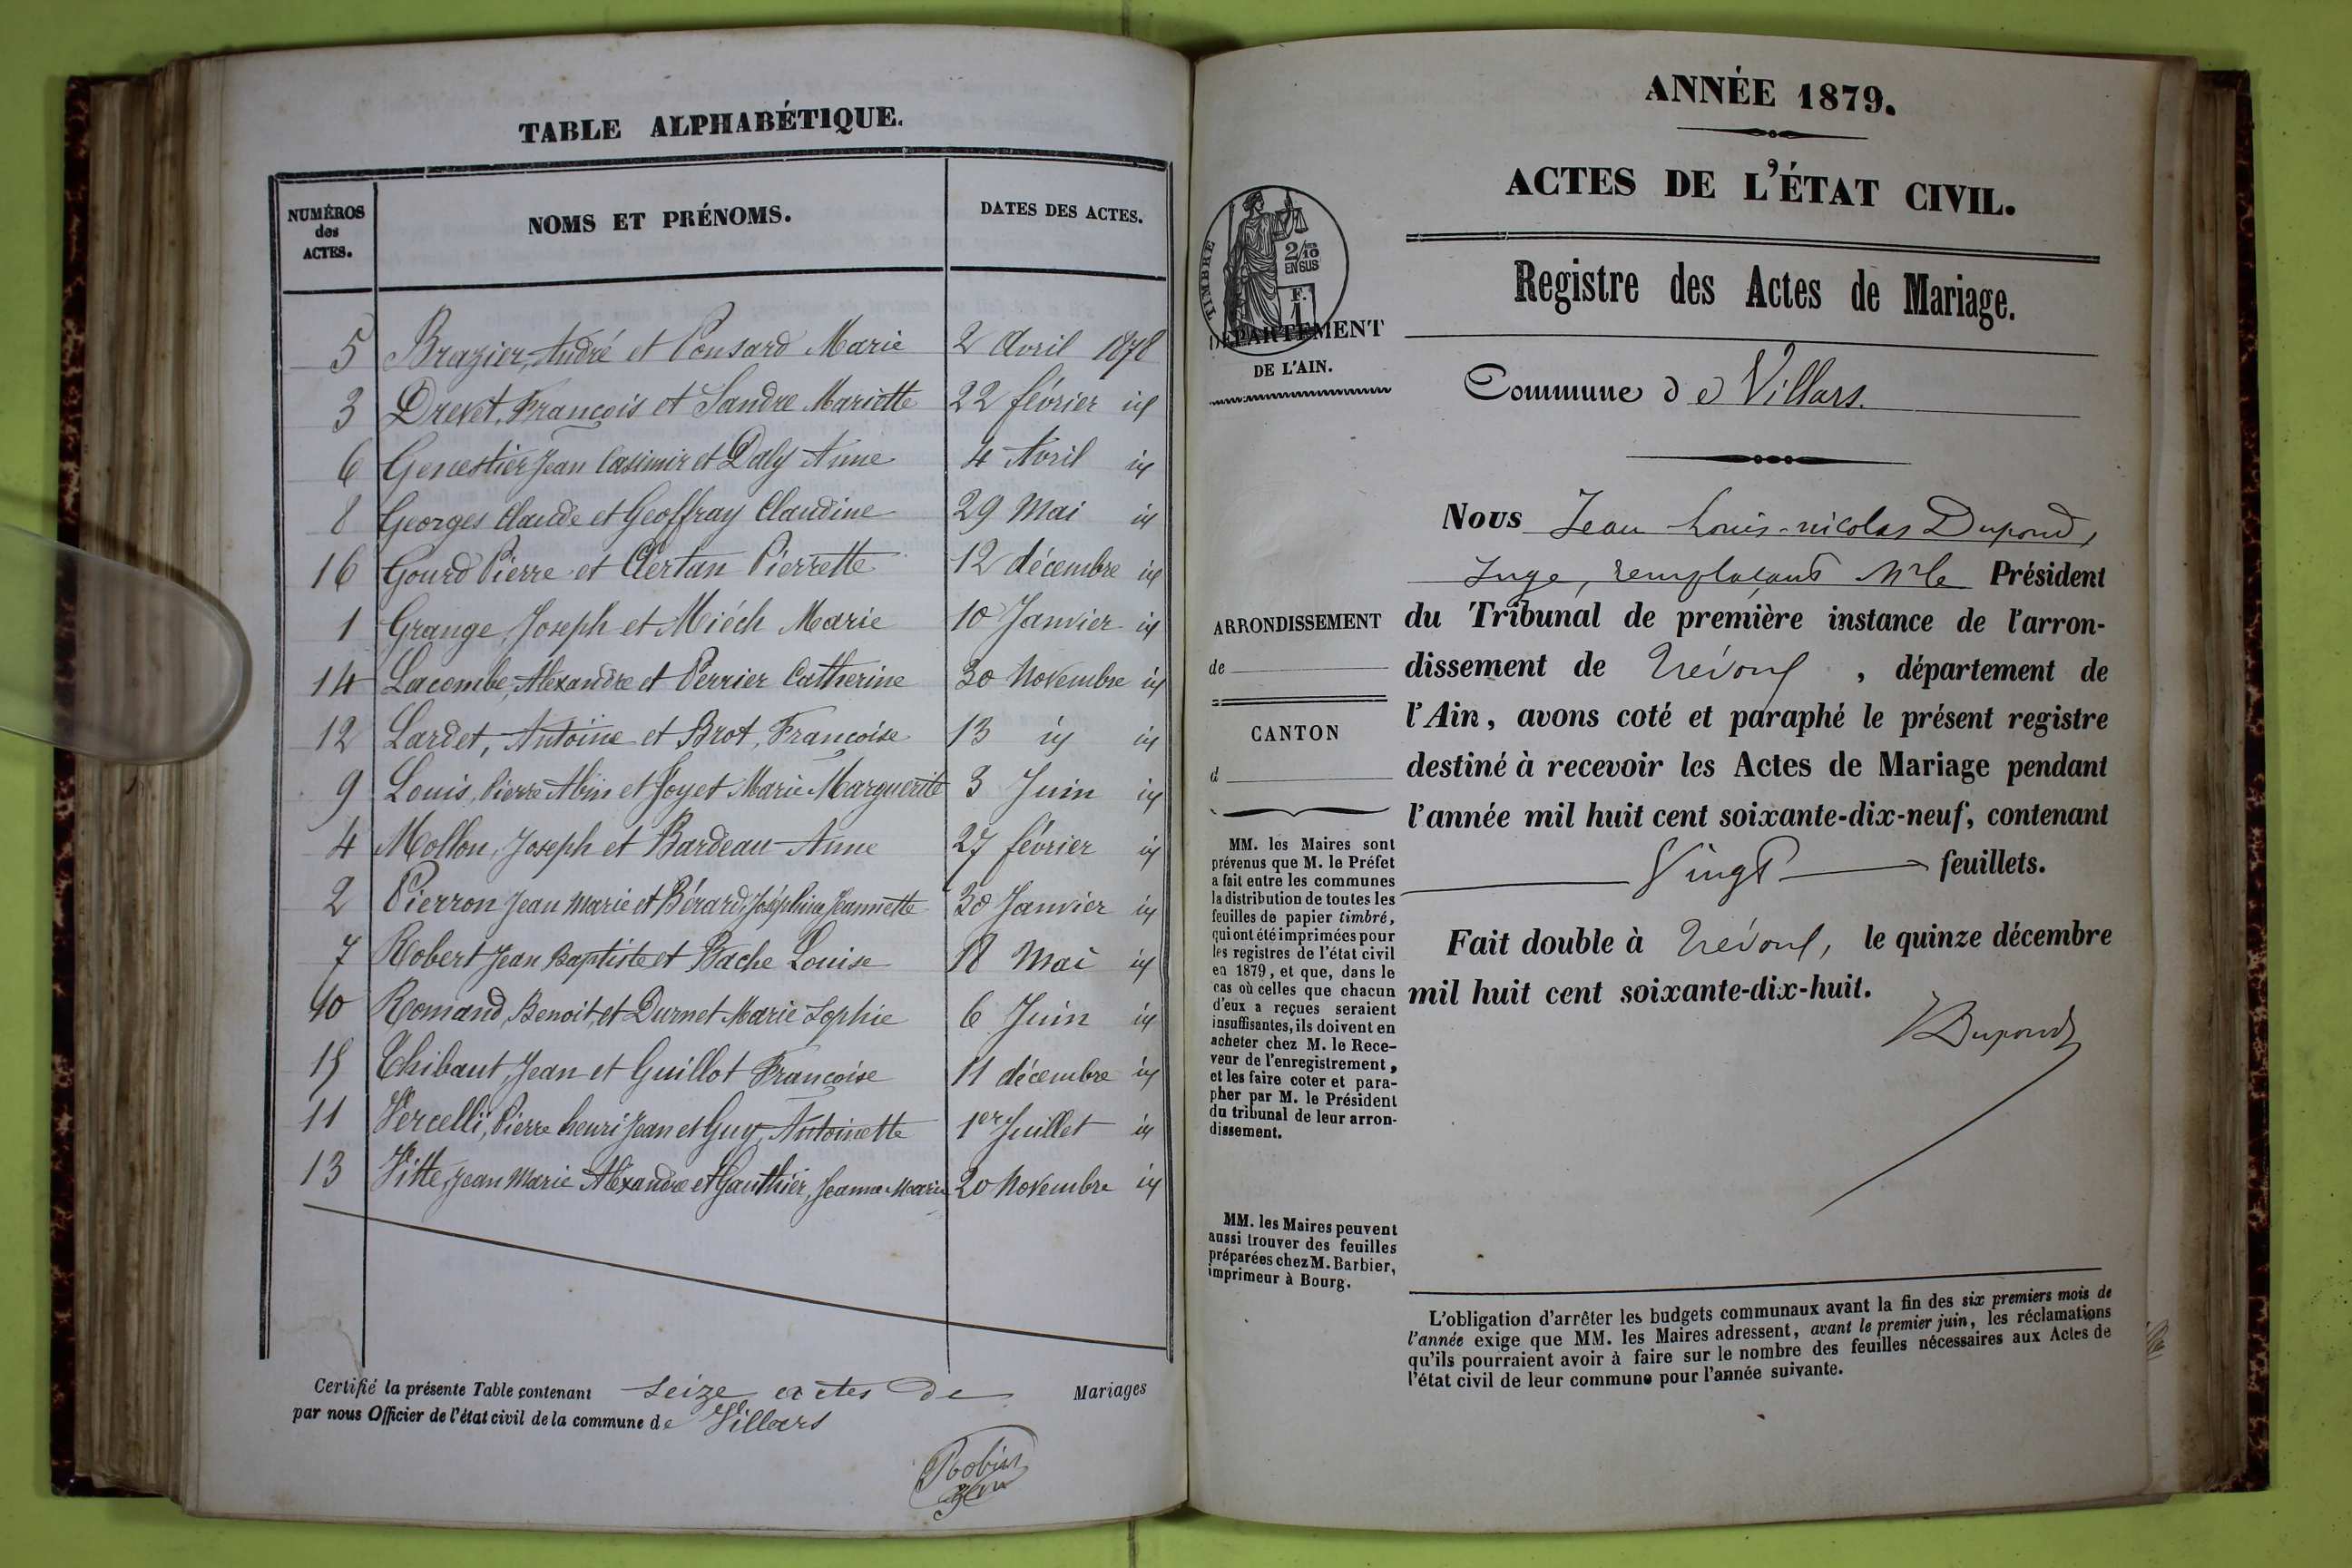 TABLE ALPHABÉTIQUE.
NUMÉROS des ACTES. NOMS ET PRÉNOMS. DATES DES ACTES.
5 Brazier, André et Ponsard Marie 2 Avril 1878
3 Drevet, François et Sandre Mariette 22 février id
6 Genestier Jean Casimir et Daly Anne 4 Avril id
8 Georges Claude et Geoffray Claudine 29 Mai id
16 Gourd Pierre et Clertan Pierrette 12 décembre id
1 Grange, Joseph et Miéch Marie 10 Janvier id
14 Lacombe, Alexandre et Perrier Catherine 30 Novembre id
12 Lardet, Antoine et Brot, Françoise 13 id id
9 Louis, Pierre Albin et Joyet Marie Marguerite 3 Juin id
4 Mollon, Joseph et Bardeau Anne 27 février id
2 Pierron Jean Marie et Bérard, Joséphine Jeannette 30 Janvier id
7 Robert Jean Baptiste et Bache Louise 18 Mai id
10 Romand, Benoit, et Durnet Marie Sophie 6 Juin id
15 Thibaut, Jean et Guillot Françoise 11 décembre id
11 Vercelli, Pierre henri Jean et Guy, Antoinette 1er Juillet id
13 Vitte, Jean Marie Alexandre et Gauthier, Jeanne Marie 20 Novembre id
Certifié la présente Table contenant seize actes de Mariages
par nous Officier de l'état civil de la commune de Villars
Robin
ANNÉE 1879.
ACTES DE L'ÉTAT CIVIL.
Registre des Actes de Mariage.
TIMBRE
2/10 EN SUS
F. 1
DÉPARTEMENT
DE L'AIN.
Commune de Villars.
Nous Jean-Louis-nicolas Dupond,
Juge, remplaçant Mr le Président
du Tribunal de première instance de l'arron-
dissement de Trévoux, département de
l'Ain, avons coté et paraphé le présent registre
destiné à recevoir les Actes de Mariage pendant
l'année mil huit cent soixante-dix-neuf, contenant
Vingt feuillets.
Fait double à Trévoux, le quinze décembre
mil huit cent soixante-dix-huit.
Dupond
ARRONDISSEMENT
de
CANTON
d
MM. les Maires sont
prévenus que M. le Préfet
a fait entre les communes
la distribution de toutes les
feuilles de papier timbré,
qui ont été imprimées pour
les registres de l'état civil
en 1879, et que, dans le
cas où celles que chacun
d'eux a reçues seraient
insuffisantes, ils doivent en
acheter chez M. le Rece-
veur de l'enregistrement,
et les faire coter et para-
pher par M. le Président
du tribunal de leur arron-
dissement.
MM. les Maires peuvent
aussi trouver des feuilles
préparées chez M. Barbier,
imprimeur à Bourg.
L'obligation d'arrêter les budgets communaux avant la fin des six premiers mois de
l'année exige que MM. les Maires adressent, avant le premier juin, les réclamations
qu'ils pourraient avoir à faire sur le nombre des feuilles nécessaires aux Actes de
l'état civil de leur commune pour l'année suivante.